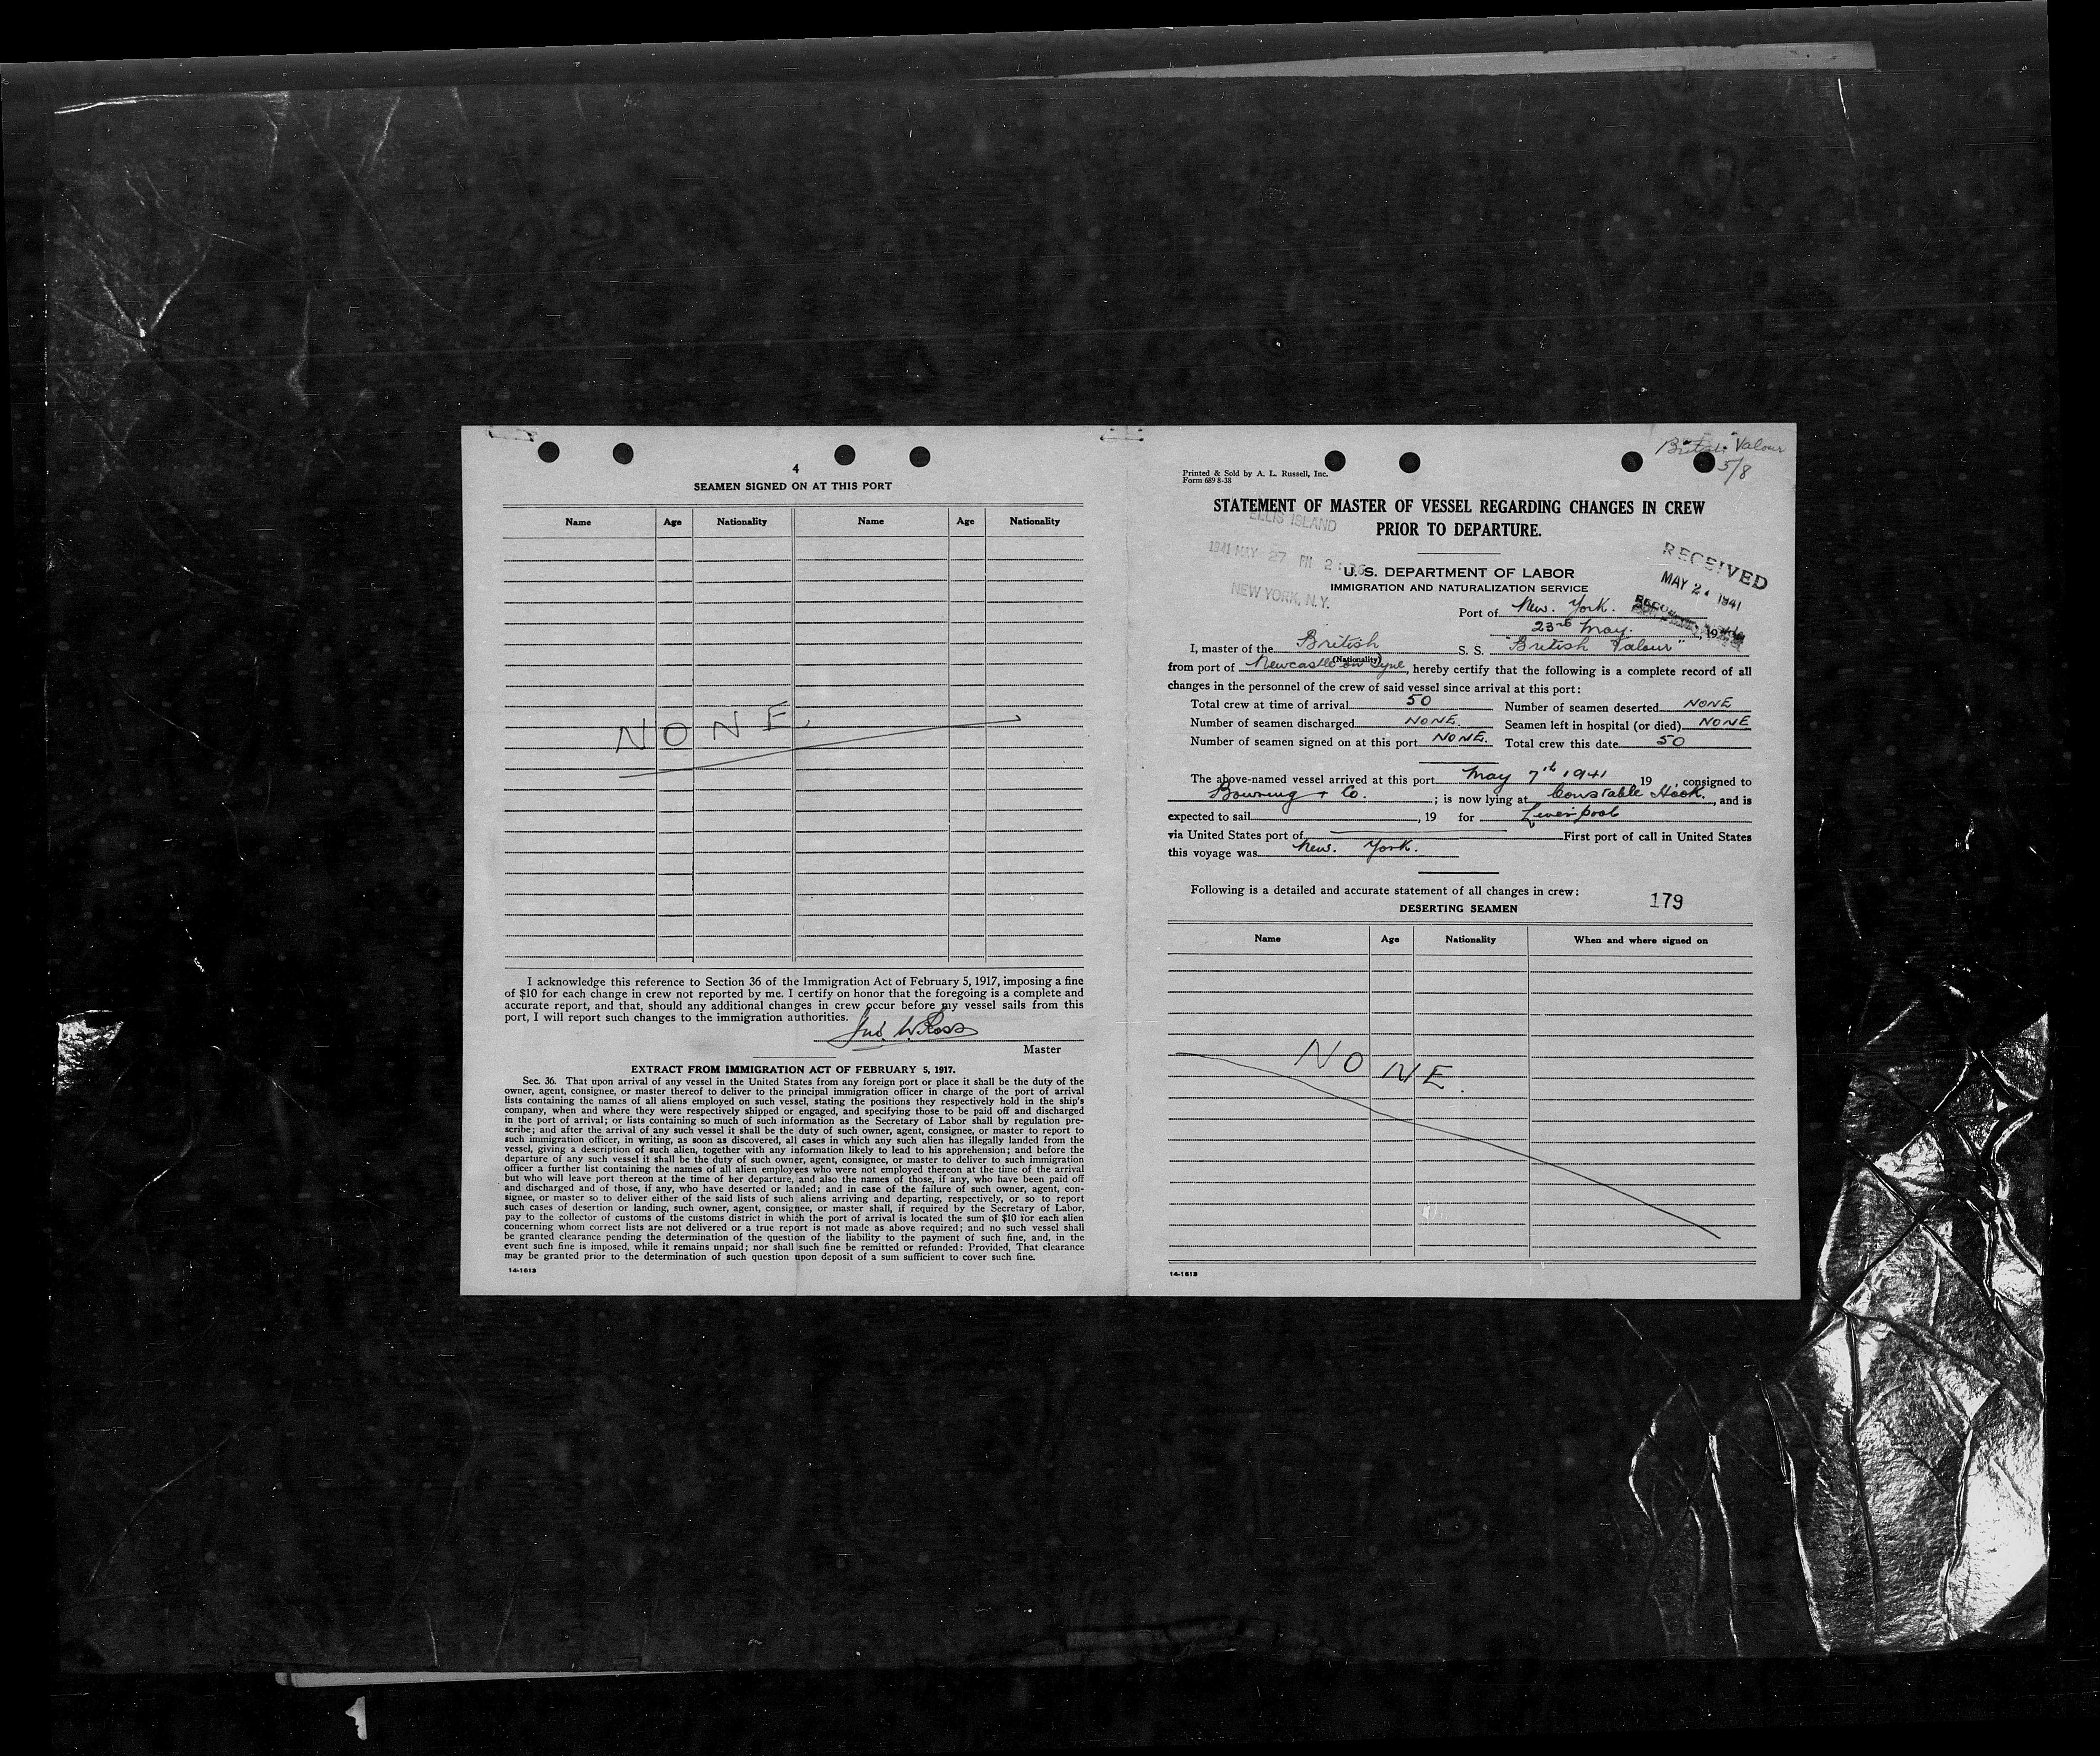 4
SEAMEN SIGNED ON AT THIS PORT
Name Age Nationality Name Age Nationality
NONE
I acknowledge this reference to Section 36 of the Immigration Act of February 5, 1917, imposing a fine
of $10 for each change in crew not reported by me. I certify on honor that the foregoing is a complete and
accurate report, and that, should any additional changes in crew occur before my vessel sails from this
port, I will report such changes to the immigration authorities.
Jno. W. Ross
Master
EXTRACT FROM IMMIGRATION ACT OF FEBRUARY 5, 1917.
Sec. 36. That upon arrival of any vessel in the United States from any foreign port or place it shall be the duty of the
owner, agent, consignee, or master thereof to deliver to the principal immigration officer in charge of the port of arrival
lists containing the names of all aliens employed on such vessel, stating the positions they respectively hold in the ship's
company, when and where they were respectively shipped or engaged, and specifying those to be paid off and discharged
in the port of arrival; or lists containing so much of such information as the Secretary of Labor shall by regulation pre-
scribe; and after the arrival of any such vessel it shall be the duty of such owner, agent, consignee, or master to report to
such immigration officer, in writing, as soon as discovered, all cases in which any such alien has illegally landed from the
vessel, giving a description of such alien, together with any information likely to lead to his apprehension; and before the
departure of any such vessel it shall be the duty of such owner, agent, consignee, or master to deliver to such immigration
officer a further list containing the names of all alien employees who were not employed thereon at the time of the arrival
but who will leave port thereon at the time of her departure, and also the names of those, if any, who have been paid off
and discharged and of those, if any, who have deserted or landed; and in case of the failure of such owner, agent, con-
signee, or master so to deliver either of the said lists of such aliens arriving and departing, respectively, or so to report
such cases of desertion or landing, such owner, agent, consignee, or master shall, if required by the Secretary of Labor,
pay to the collector of customs of the customs district in which the port of arrival is located the sum of $10 for each alien
concerning whom correct lists are not delivered or a true report is not made as above required; and no such vessel shall
be granted clearance pending the determination of the question of the liability to the payment of such fine, and, in the
event such fine is imposed, while it remains unpaid; nor shall such fine be remitted or refunded: Provided, That clearance
may be granted prior to the determination of such question upon deposit of a sum sufficient to cover such fine.
14-1613
British Valour
5/8
Printed & Sold by A. L. Russell, Inc.
Form 689 8-38
STATEMENT OF MASTER OF VESSEL REGARDING CHANGES IN CREW
PRIOR TO DEPARTURE.
ELLIS ISLAND
1941 MAY 27 PM 2:36
NEW YORK, N.Y.
U. S. DEPARTMENT OF LABOR
IMMIGRATION AND NATURALIZATION SERVICE
RECEIVED
MAY 2 1941
Port of New. York.
23rd May. 19
I, master of the British S. S. "British Valour"
(Nationality)
from port of Newcastle on Tyne, hereby certify that the following is a complete record of all
changes in the personnel of the crew of said vessel since arrival at this port:
Total crew at time of arrival 50 Number of seamen deserted NONE
Number of seamen discharged NONE. Seamen left in hospital (or died) NONE
Number of seamen signed on at this port NONE. Total crew this date 50
The above-named vessel arrived at this port May 7th 1941 19 , consigned to
Bowring + Co. ; is now lying at Constable Hook., and is
expected to sail , 19 for Liverpool
via United States port of First port of call in United States
this voyage was New. York.
Following is a detailed and accurate statement of all changes in crew:
179
DESERTING SEAMEN
Name Age Nationality When and where signed on
NONE.
14-1613